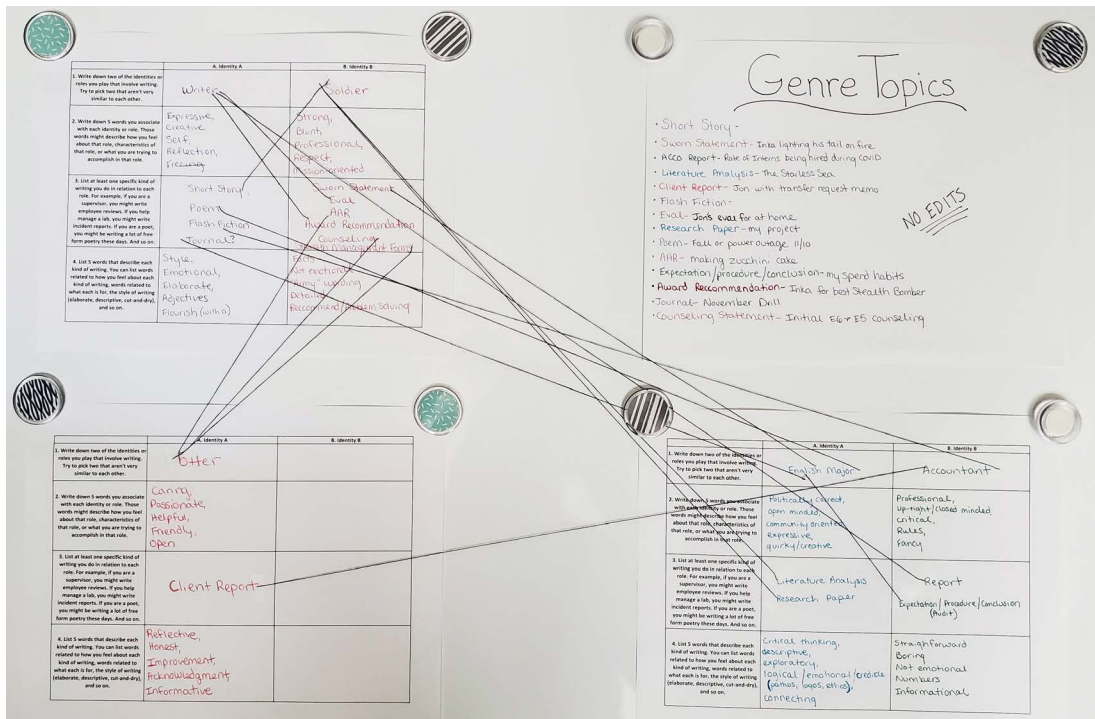 A. Identity A
B. Identity B
1. Write down two of the identities or
roles you play that involve writing.
Try to pick two that aren't very
similar to each other.
Writer
Soldier
2. Write down 5 words you associate
with each identity or role. Those
words might describe how you feel
about that role, characteristics of
that role, or what you are trying to
accomplish in that role.
Expressive,
Creative
Self,
Reflection,
Freeing
Strong,
Blunt,
Professional,
Respect,
Mission-oriented
3. List at least one specific kind of
writing you do in relation to each
role. For example, if you are a
supervisor, you might write
employee reviews. If you help
manage a lab, you might write
incident reports. If you are a poet,
you might be writing a lot of free
form poetry these days. And so on.
Short Story
Poem
Flash Fiction
Journal?
Sworn Statement
Eval
AAR
Award Recommendation
Counseling
4. List 5 words that describe each
kind of writing. You can list words
related to how you feel about each
kind of writing, words related to
what each is for, the style of writing
(elaborate, descriptive, cut-and-dry),
and so on.
Style,
Emotional,
Elaborate,
Adjectives
Flourish (with a)
Facts
Not emotional
"Army" wording
Detailed
Recommend/problem solving
Genre Topics
• Short Story -
• Sworn Statement - Inka lighting his tail on fire
• ACCO Report - Rate of Interns being hired during COVID
• Literature Analysis - The Starless Sea
• Client Report - Jon with transfer request memo
• Flash Fiction -
• Eval - Jon's eval for at home
• Research Paper - my project
• Poem - Fall or power outage 11/10
• AAR - making zucchini cake
• Expectation/procedure/conclusion - my spend habits
• Award Reccommendation - Inka for best Stealth Bomber
• Journal - November Drill
• Counseling Statement - Initial E6 + E5 counseling
NO EDITS
A. Identity A
B. Identity B
1. Write down two of the identities or
roles you play that involve writing.
Try to pick two that aren't very
similar to each other.
Otter
2. Write down 5 words you associate
with each identity or role. Those
words might describe how you feel
about that role, characteristics of
that role, or what you are trying to
accomplish in that role.
Caring,
Passionate,
Helpful,
Friendly,
Open
3. List at least one specific kind of
writing you do in relation to each
role. For example, if you are a
supervisor, you might write
employee reviews. If you help
manage a lab, you might write
incident reports. If you are a poet,
you might be writing a lot of free
form poetry these days. And so on.
Client Report
4. List 5 words that describe each
kind of writing. You can list words
related to how you feel about each
kind of writing, words related to
what each is for, the style of writing
(elaborate, descriptive, cut-and-dry),
and so on.
Reflective,
Honest,
Improvement,
Acknowledgment
Informative
A. Identity A
B. Identity B
1. Write down two of the identities or
roles you play that involve writing.
Try to pick two that aren't very
similar to each other.
English Major
Accountant
2. Write down 5 words you associate
with each identity or role. Those
words might describe how you feel
about that role, characteristics of
that role, or what you are trying to
accomplish in that role.
Politically correct,
open minded,
community oriented,
expressive,
quirky/creative
Professional,
up-tight/closed minded,
critical,
Rules,
fancy
3. List at least one specific kind of
writing you do in relation to each
role. For example, if you are a
supervisor, you might write
employee reviews. If you help
manage a lab, you might write
incident reports. If you are a poet,
you might be writing a lot of free
form poetry these days. And so on.
Literature Analysis
Research Paper
Report
Expectation/Procedure/Conclusion
(Audit)
4. List 5 words that describe each
kind of writing. You can list words
related to how you feel about each
kind of writing, words related to
what each is for, the style of writing
(elaborate, descriptive, cut-and-dry),
and so on.
Critical thinking,
descriptive,
exploratory,
logical/emotional/credible
(pathos, logos, ethics),
connecting
Straighforward
Boring
Not emotional
Numbers
Informational